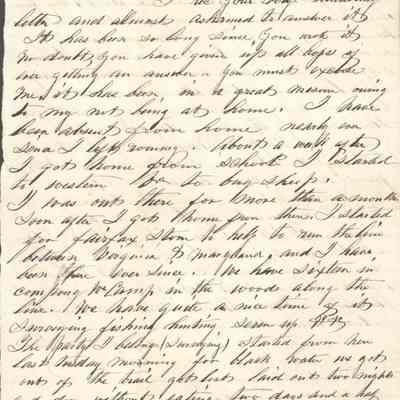 your
letter and almost ashamed to answer it
It has been so long since you wrote it
no doubt you have given up all hopes of
ever getting an answer. you must excuse
me, it has been, in a great measure owing
to my not being at home. I have
been absent from home nearly ever
since I left. About a week after
I got home from school I started
to western Va to buy sheep.
I was out there for more than a month
Soon after I got home from there, I started
for fairfax stone to help to run the line
between Virginia & maryland, and I have
been here ever since. We have sixteen in
company We Camp in the woods along the
line. We have quite a nice time of it
Surveying fishing, hunting,
The party I belong (Surveying) started from here
last monday morning for black water we got
out of the trail got lost laid out two nights
and day without eating two days and a half